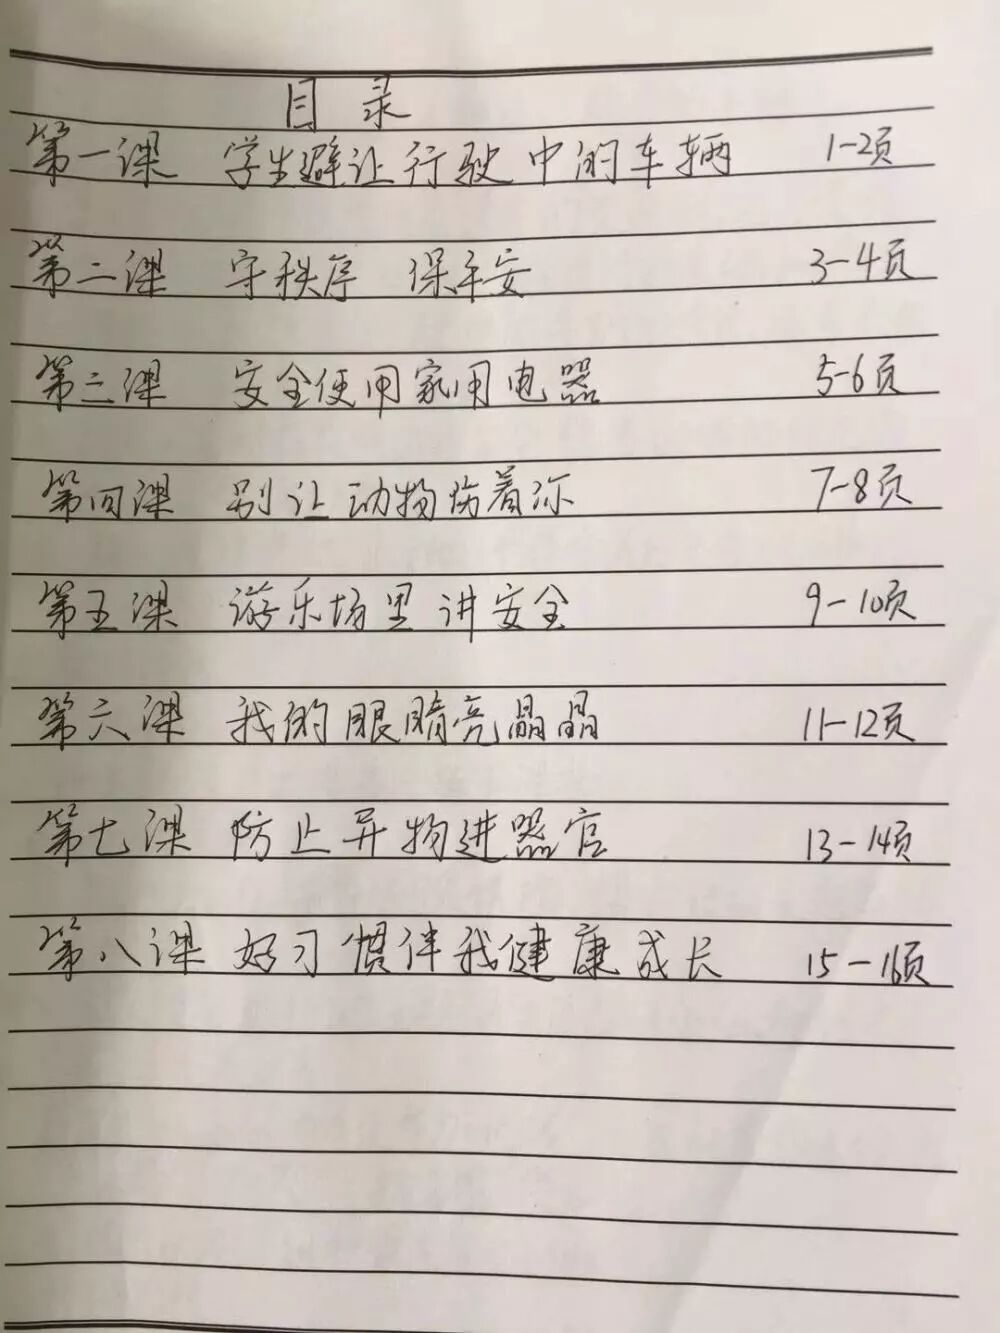 目 录
第一课 学生避让行驶中的车辆 1-2页
第二课 守秩序 保平安 3-4页
第三课 安全使用家用电器 5-6页
第四课 别让动物伤着你 7-8页
第五课 游乐场里讲安全 9-10页
第六课 我的眼睛亮晶晶 11-12页
第七课 防止异物进器官 13-14页
第八课 好习惯伴我健康成长 15-16页